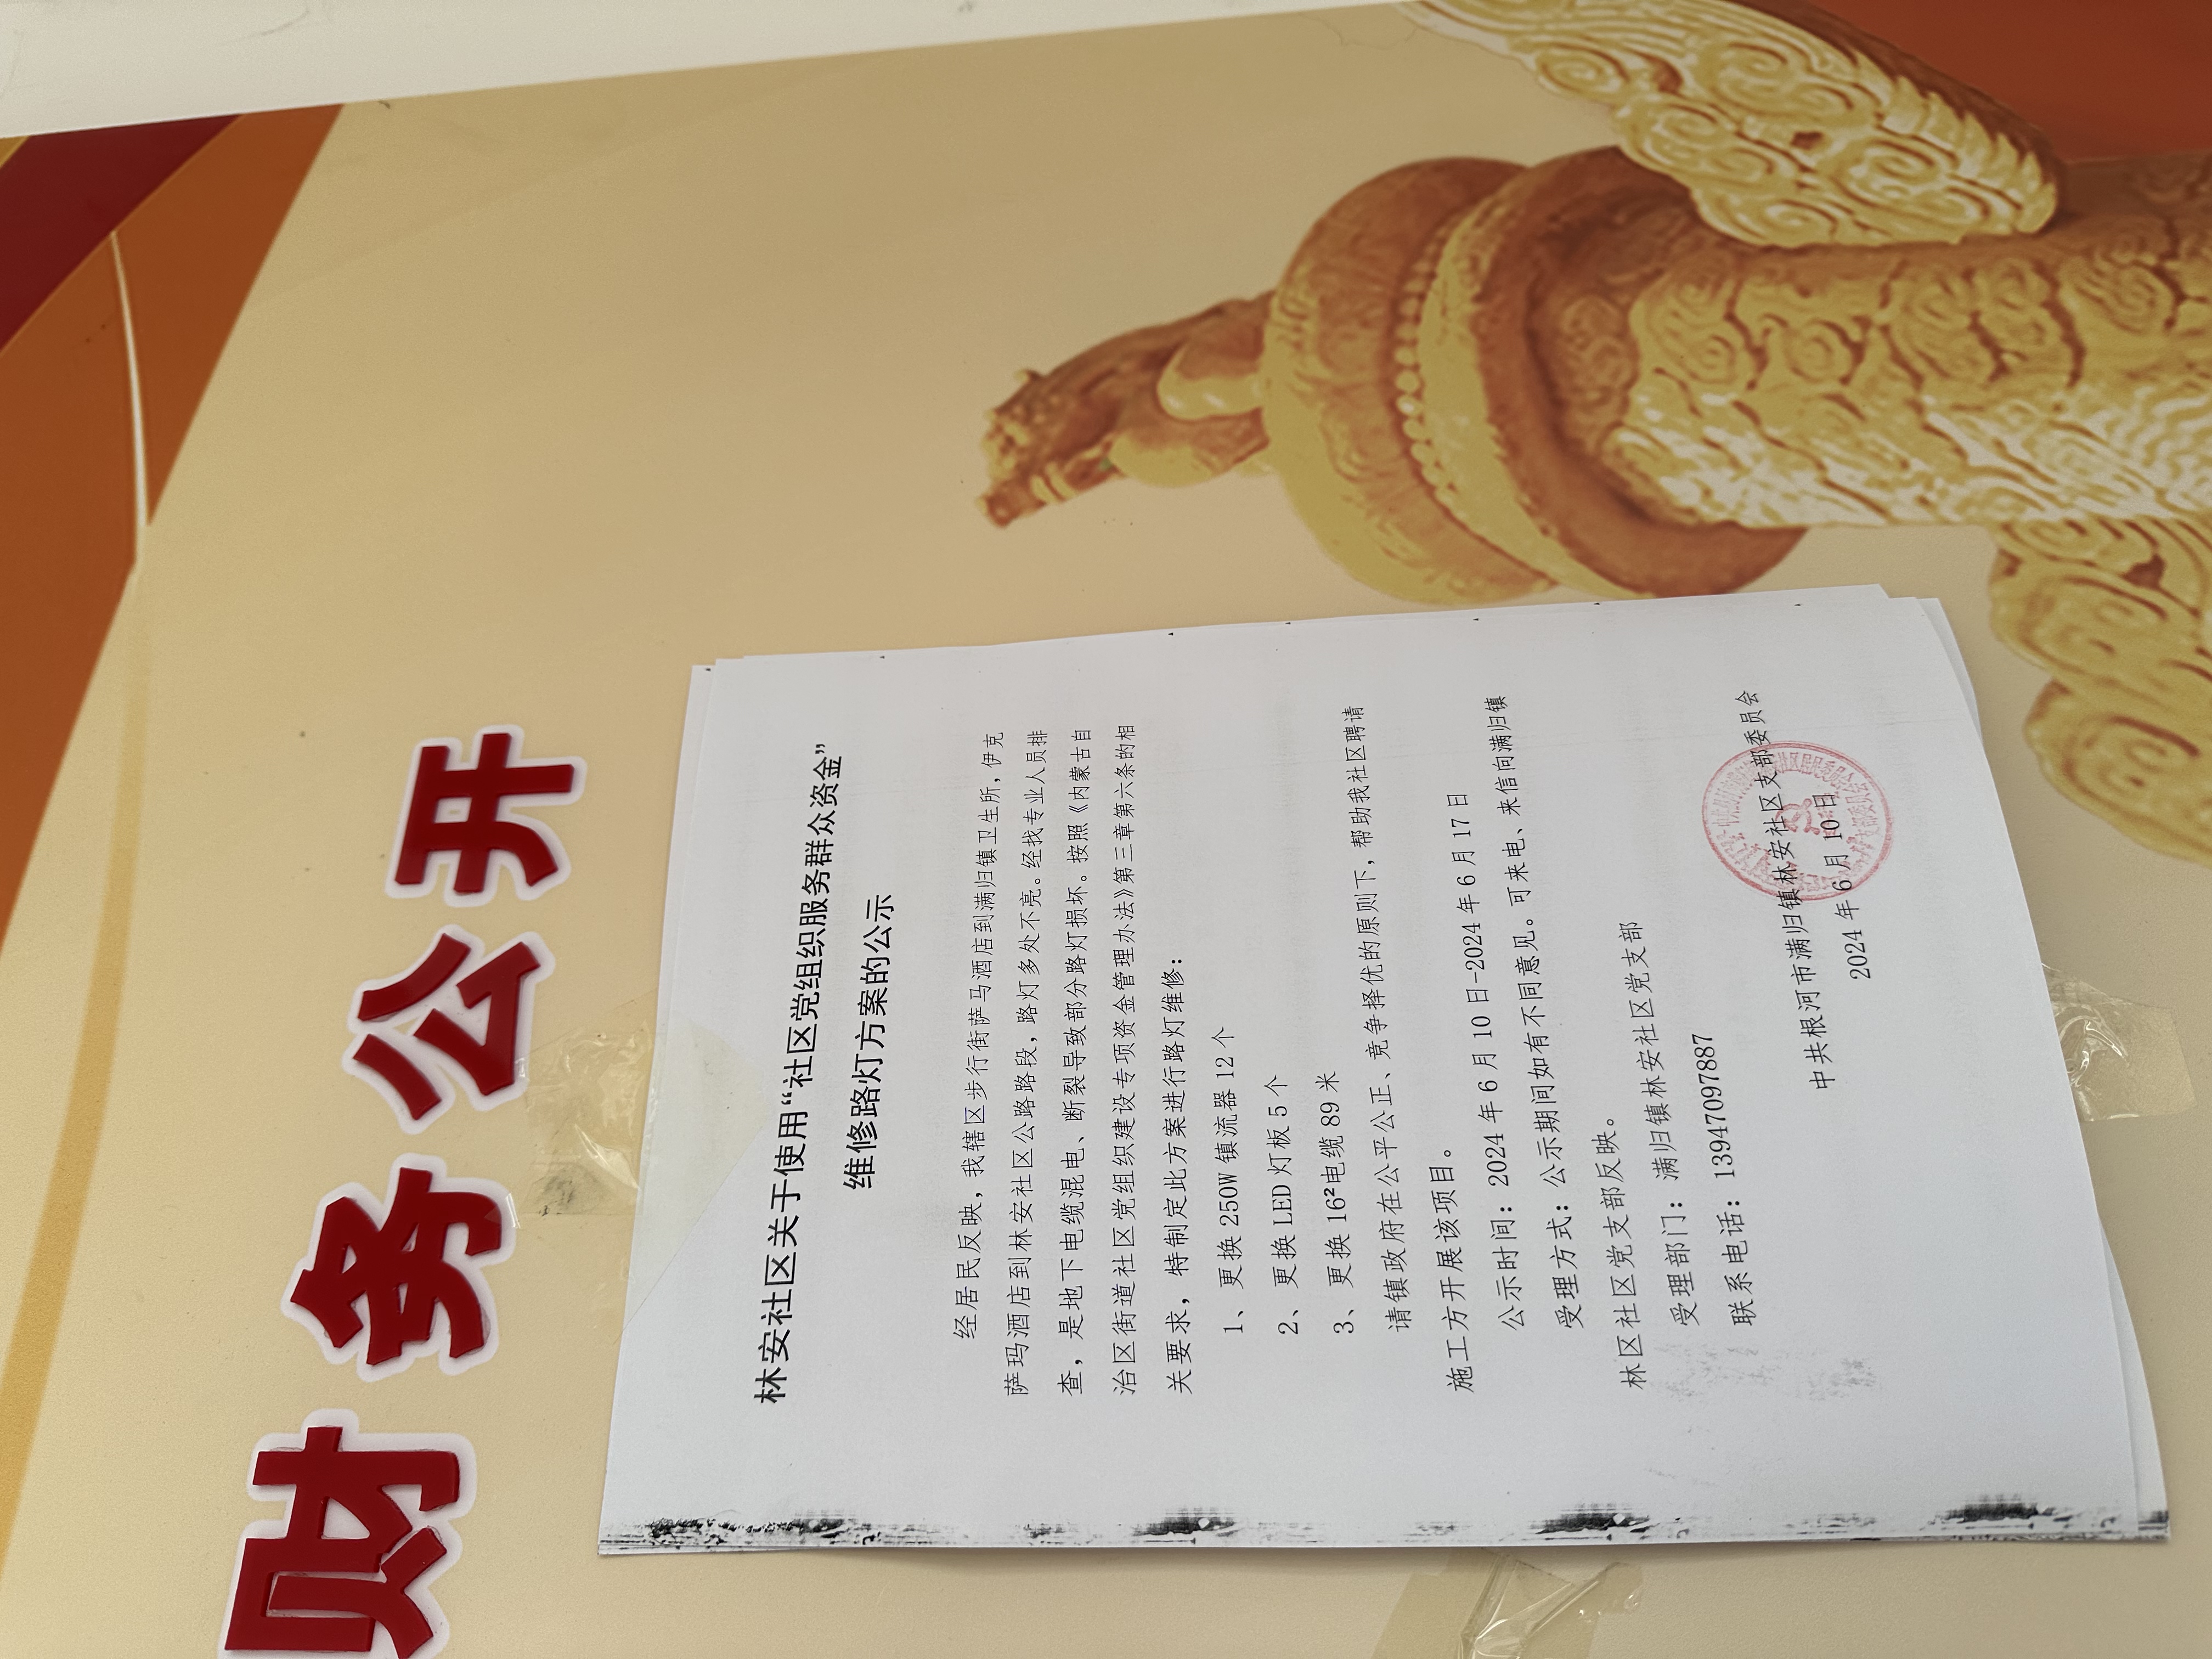 财务公开
林安社区关于使用“社区党组织服务群众资金”
维修路灯方案的公示
经居民反映，我辖区步行街萨马酒店到满归镇卫生所，伊克
萨玛酒店到林安社区公路路段，路灯多处不亮。经找专业人员排
查，是地下电缆混电、断裂导致部分路灯损坏。按照《内蒙古自
治区街道社区党组织建设专项资金管理办法》第三章第六条的相
关要求，特制定此方案进行路灯维修：
1、更换 250W 镇流器 12 个
2、更换 LED 灯板 5 个
3、更换 16²电缆 89 米
请镇政府在公平公正、竞争择优的原则下，帮助我社区聘请
施工方开展该项目。
公示时间：2024 年 6 月 10 日-2024 年 6 月 17 日
受理方式：公示期间如有不同意见。可来电、来信向满归镇
林区社区党支部反映。
受理部门：满归镇林安社区党支部
联系电话：13947097887
中共根河市满归镇林安社区支部委员会
2024 年 6 月 10 日